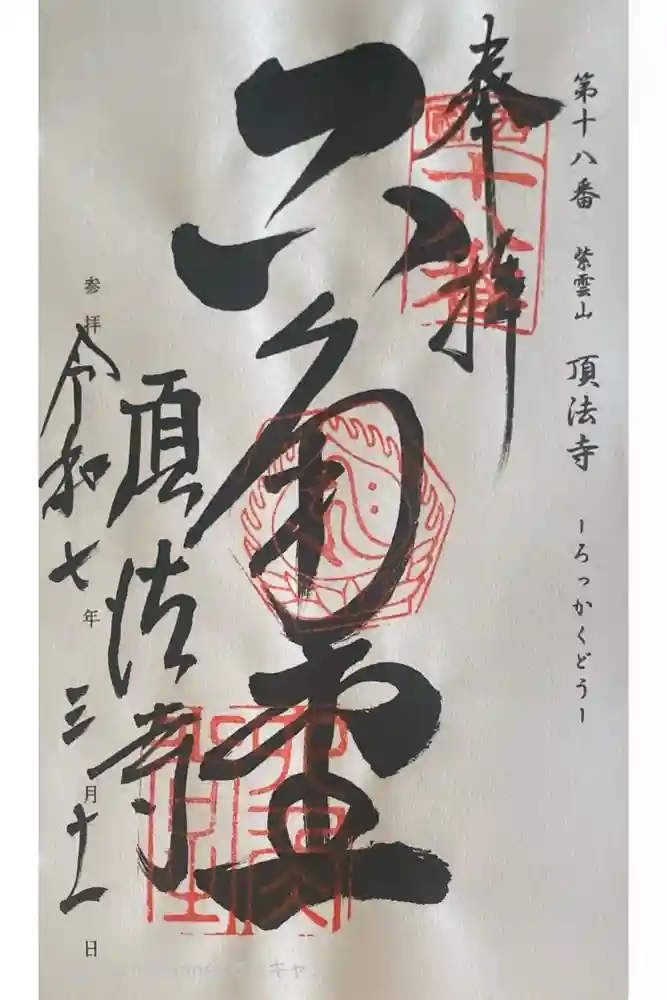 第十八番 紫雲山 頂法寺 ーろっかくどうー
奉拝
西國
十八番
六角堂
頂法寺
参拝 令和七年 三月十一日